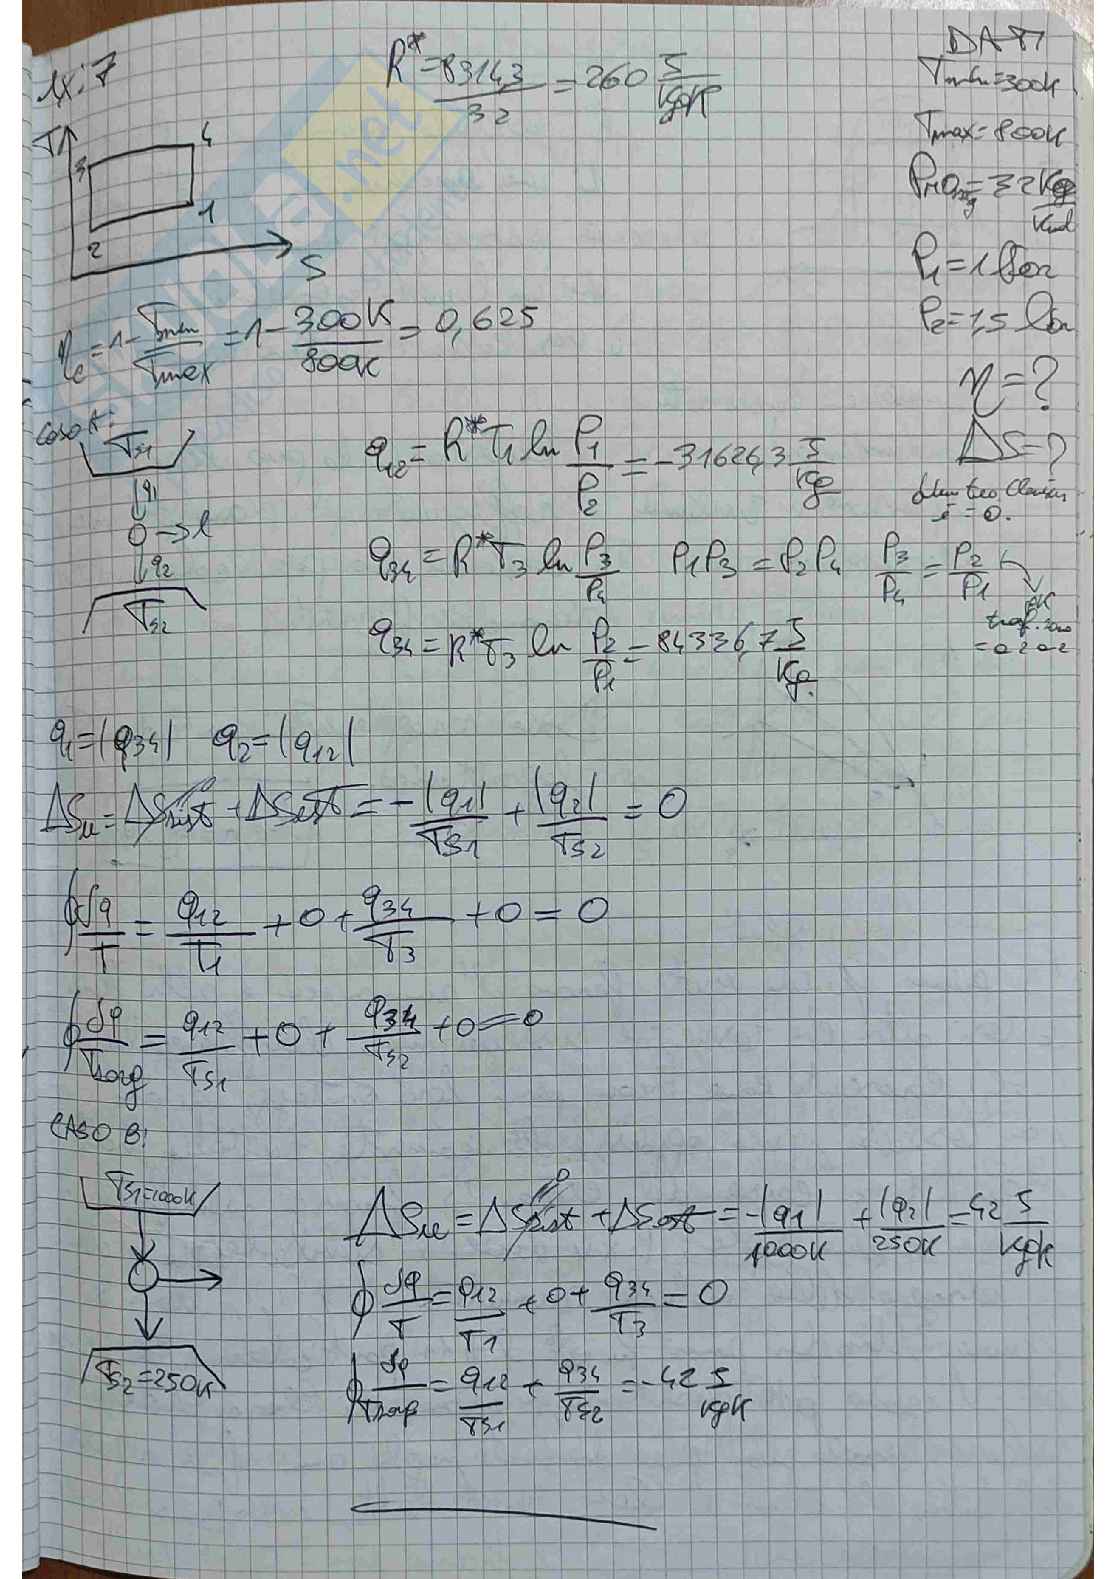 IX.7
R* = 8314,3 / 32 = 260 J/kgK
DATI
Tmin = 300K
Tmax = 800K
= 32 kg/kmol
P1 = 1 bar
P2 = 1,5 bar
η = ?
ΔS = ?
= 0.
T
3 4
2 1
S
ηc = 1 - Tmin/Tmax = 1 - 300K/800K = 0,625
CASO A:
TS1
q1
→ l
q2
TS2
q12 = R* T1 ln P1/P2 = -31626,3 J/kg
q34 = R* T3 ln P3/P4 P1P3 = P2P4 P3/P4 = P2/P1
q34 = R* T3 ln P2/P1 = 84336,7 J/kg
q1 = |q34| q2 = |q12|
ΔSu = ΔSsist + ΔSest = -|q1|/TS1 + |q2|/TS2 = 0
∮ δq/T = q12/T1 + 0 + q34/T3 + 0 = 0
∮ δq/Tsorg = q12/TS1 + 0 + q34/TS2 + 0 = 0
CASO B:
TS1 = 1000K
ΔSu = ΔSsist + ΔSest = -|q1|/1000K + |q2|/250K = 42 J/kgK
∮ δq/T = q12/T1 + 0 + q34/T3 = 0
TS2 = 250K
∮ δq/Tsorg = q12/TS1 + q34/TS2 = -42 J/kgK